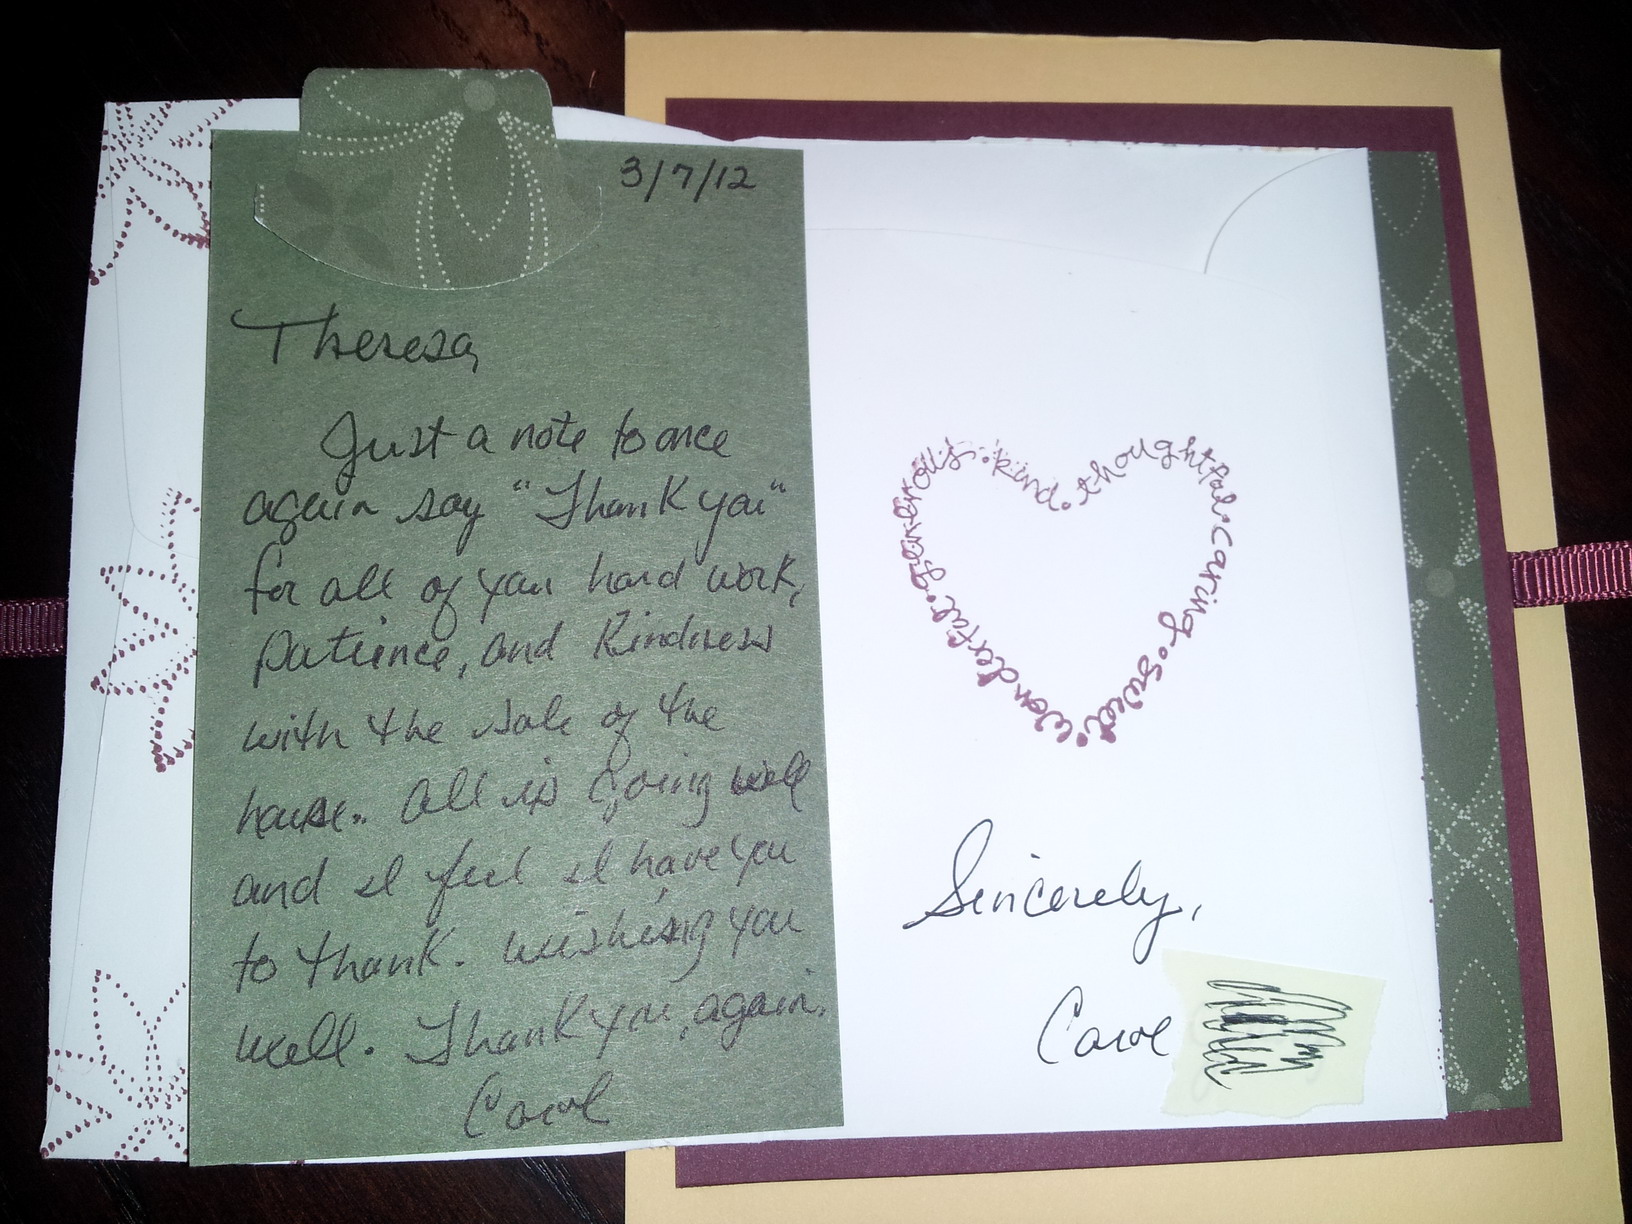 3/7/12
Theresa,
Just a note to once
again say "Thank you"
for all of your hard work,
patience, and kindness
with the sale of the
house. All is going well
and I feel I have you
to thank. Wishing you
well. Thank you, again.
Carol
generous • kind • thoughtful • caring • sweet • wonderful •
Sincerely,
Carol